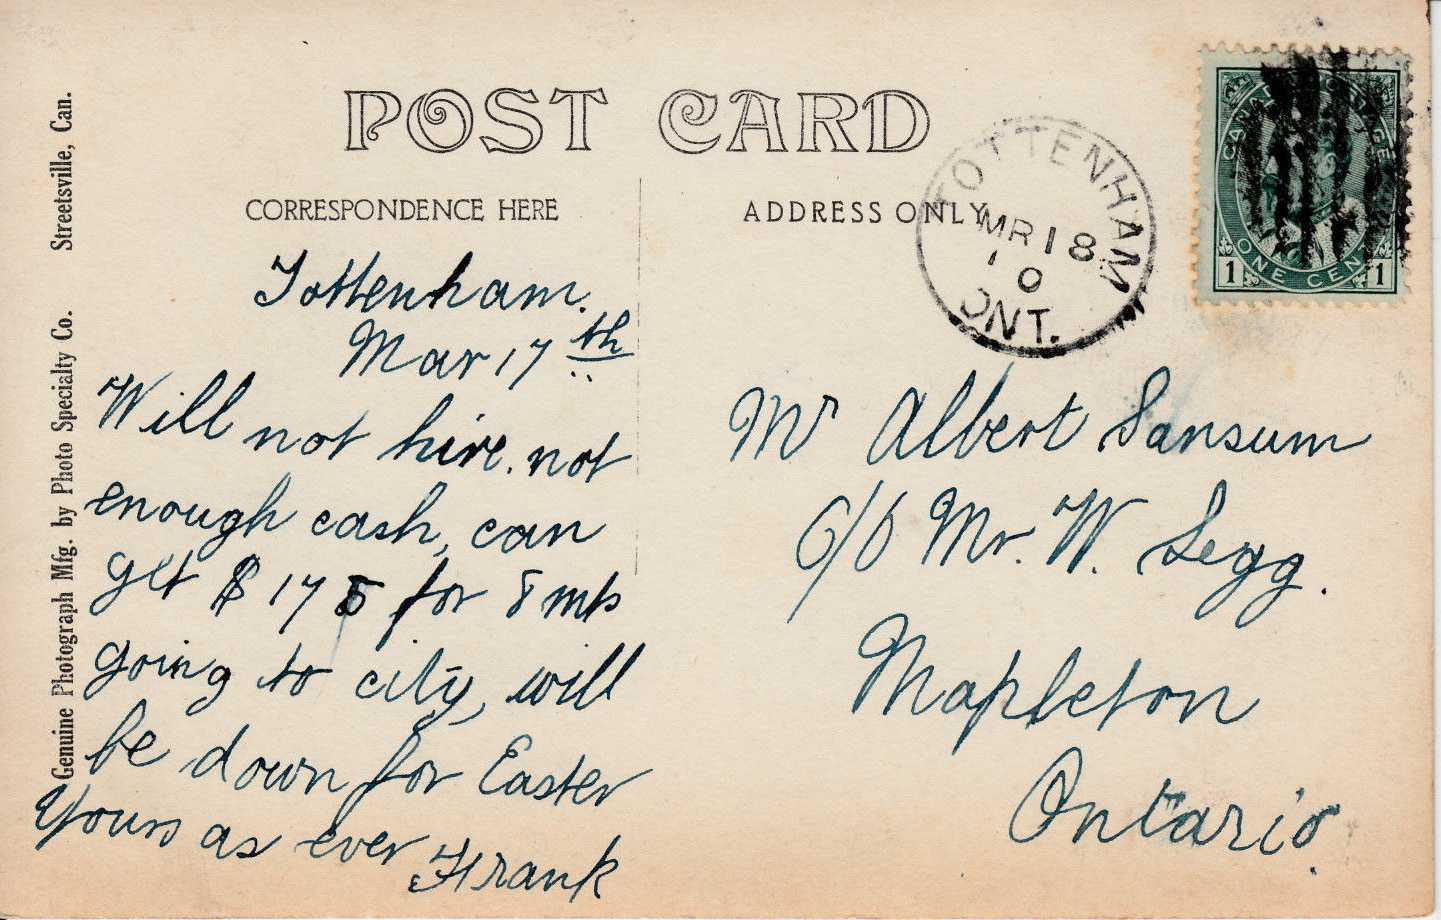 POST CARD
CORRESPONDENCE HERE
ADDRESS ONLY
Genuine Photograph Mfg. by Photo Specialty Co. Streetsville, Can.
TOTTENHAM
MR 18
10
ONT.
CANADA POSTAGE
1 ONE CENT 1
Tottenham.
Mar 17th
Will not hire. not
enough cash, can
get $175 for 8 mts
going to city, will
be down for Easter
Yours as ever
Frank
Mr Albert Sansum
c/o Mr. W. Segg.
Mapleton
Ontario.